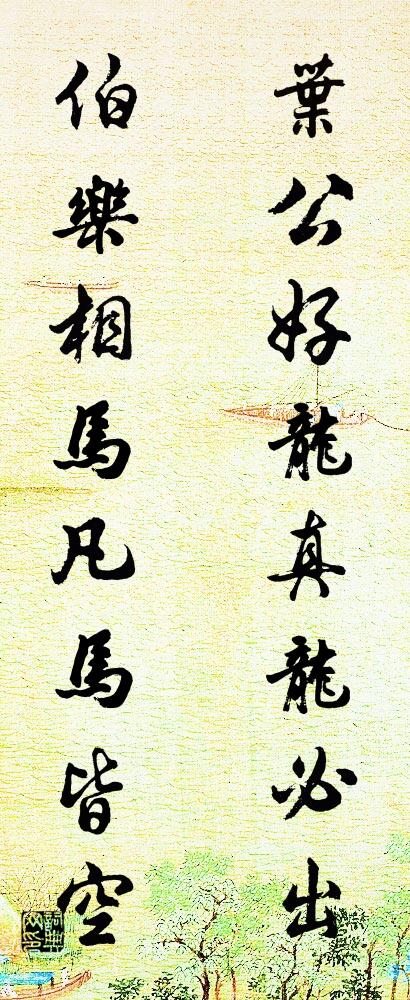 葉公好龍真龍必出
伯樂相馬凡馬皆空